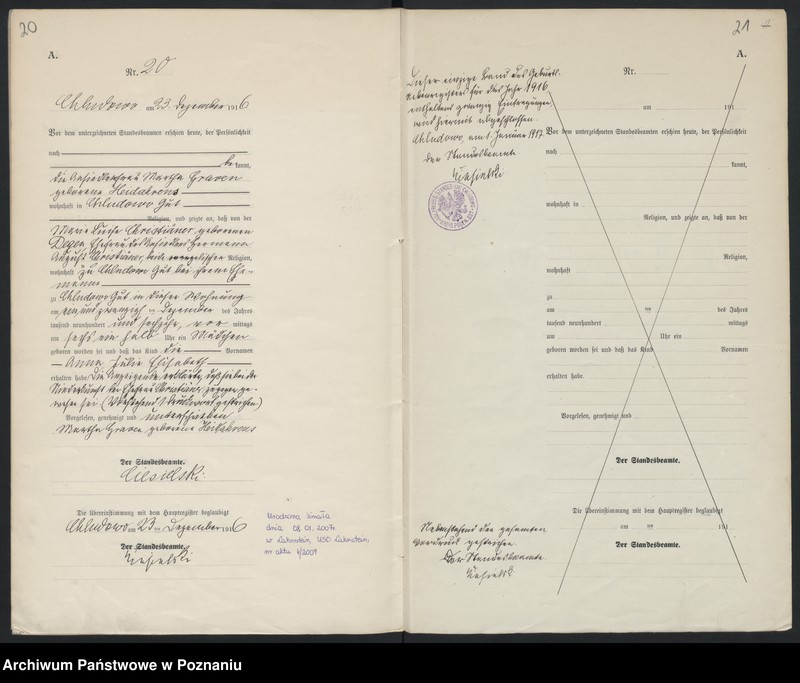 20
A.
Nr. 20
Chludowo am 23. Dezember 1916
Vor dem unterzeichneten Standesbeamten erschien heute, der Persönlichkeit
nach
bekannt,
die Ansiedlerfrau Martha Graven
geborene Heidakrons
wohnhaft in Chludowo Gut
Religion, und zeigte an, daß von der
Marie Luise Christiäner geborenen
Degen, Ehefrau des Ansiedlers Hermann
August Christiäner, beide evangelischer Religion,
wohnhaft zu Chludowo Gut bei ihrem Ehe-
manne
zu Chludowo Gut in dieser Wohnung
am ein und zwanzigsten Dezember des Jahres
tausend neunhundert und sechzehn, vor mittags
um sechs ein halb Uhr ein Mädchen
geboren worden sei und daß das Kind die Vornamen
Anna Julie Elisabeth
erhalten habe. Die Anzeigende erklärte, daß sie bei der
Niederkunft der Ehefrau Christiäner zugegen ge-
wesen sei (Vorstehend 1 Druckwort gestrichen)
Vorgelesen, genehmigt und unterschrieben
Martha Graven geborene Heidakrons
Der Standesbeamte.
Ciesielski
Die Übereinstimmung mit dem Hauptregister beglaubigt
Chludowo am 23 ten Dezember 1916
Der Standesbeamte.
Ciesielski
Urodzona zmarła
dnia 08.01.2007r.
w Lahnstein, USC Lahnstein,
nr aktu 4/2007
21
Dieser einzige Band des Geburts-
Nebenregisters für das Jahr 1916
enthaltend zwanzig Eintragungen
wird hiermit abgeschlossen.
Chludowo, am 1. Januar 1917.
Der Standesbeamte
Ciesielski
A.
Nr.
am 191
Vor dem unterzeichneten Standesbeamten erschien heute, der Persönlichkeit
nach
kannt,
wohnhaft in
Religion, und zeigte an, daß von der
Religion,
wohnhaft
zu
am ten des Jahres
tausend neunhundert mittags
um Uhr ein
geboren worden sei und daß das Kind Vornamen
erhalten habe.
Vorgelesen, genehmigt und
Der Standesbeamte.
Die Übereinstimmung mit dem Hauptregister beglaubigt
am ten 191
Der Standesbeamte.
Nebenstehend den gesamten
Vordruck gestrichen.
Der Standesbeamte
Ciesielski
Archiwum Państwowe w Poznaniu